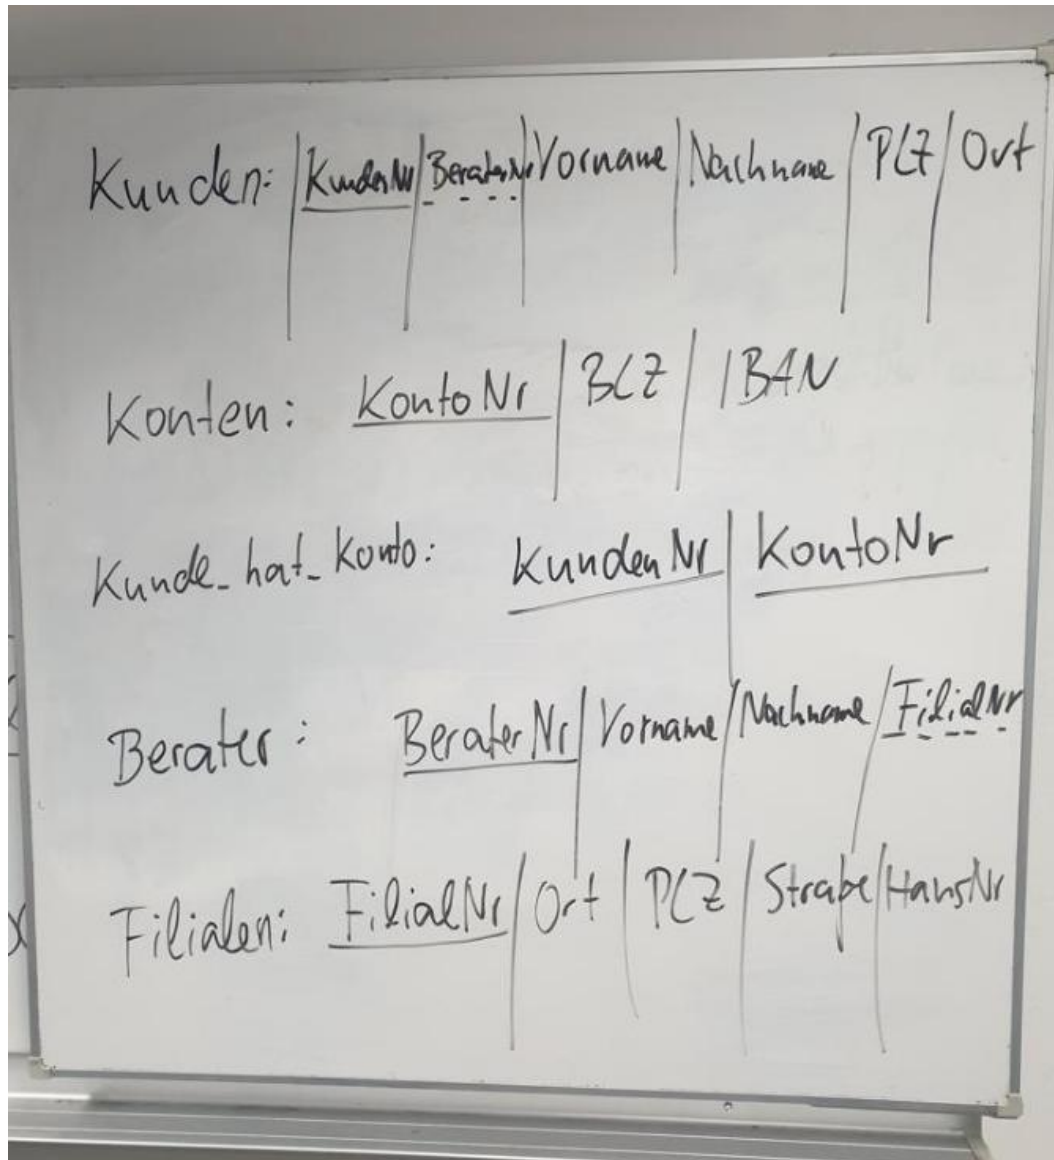 Kunden: | KundenNr | BeraterNr | Vorname | Nachname | PLZ | Ort
Konten: KontoNr | BLZ | IBAN
Kunde_hat_Konto: KundenNr | KontoNr
Berater: BeraterNr | Vorname | Nachname | FilialNr
Filialen: FilialNr | Ort | PLZ | Straße | HausNr